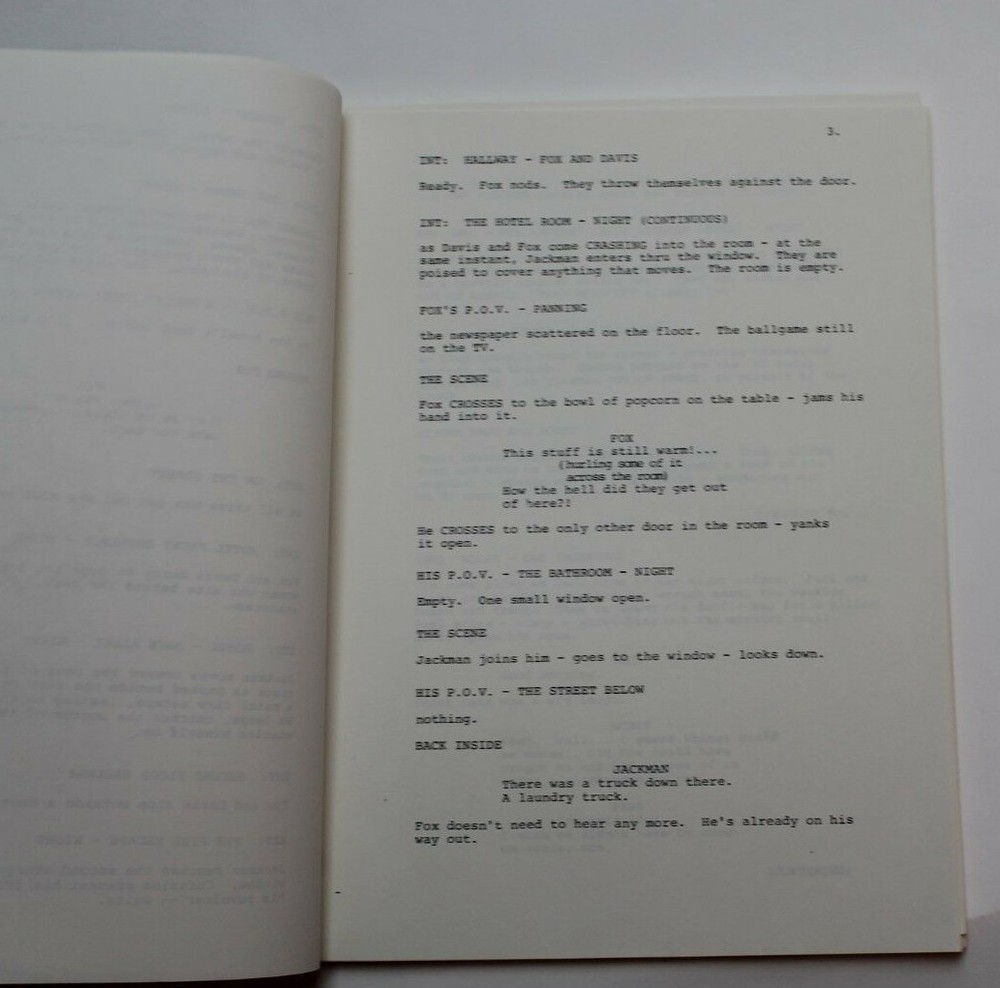 3.
INT: HALLWAY - FOX AND DAVIS
Ready. Fox nods. They throw themselves against the door.
INT: THE HOTEL ROOM - NIGHT (CONTINUOUS)
as Davis and Fox come CRASHING into the room - at the
same instant, Jackman enters thru the window. They are
poised to cover anything that moves. The room is empty.
FOX'S P.O.V. - PANNING
the newspaper scattered on the floor. The ballgame still
on the TV.
THE SCENE
Fox CROSSES to the bowl of popcorn on the table - jams his
hand into it.
FOX
This stuff is still warm!...
(hurling some of it
across the room)
How the hell did they get out
of here?!
He CROSSES to the only other door in the room - yanks
it open.
HIS P.O.V. - THE BATHROOM - NIGHT
Empty. One small window open.
THE SCENE
Jackman joins him - goes to the window - looks down.
HIS P.O.V. - THE STREET BELOW
nothing.
BACK INSIDE
JACKMAN
There was a truck down there.
A laundry truck.
Fox doesn't need to hear any more. He's already on his
way out.